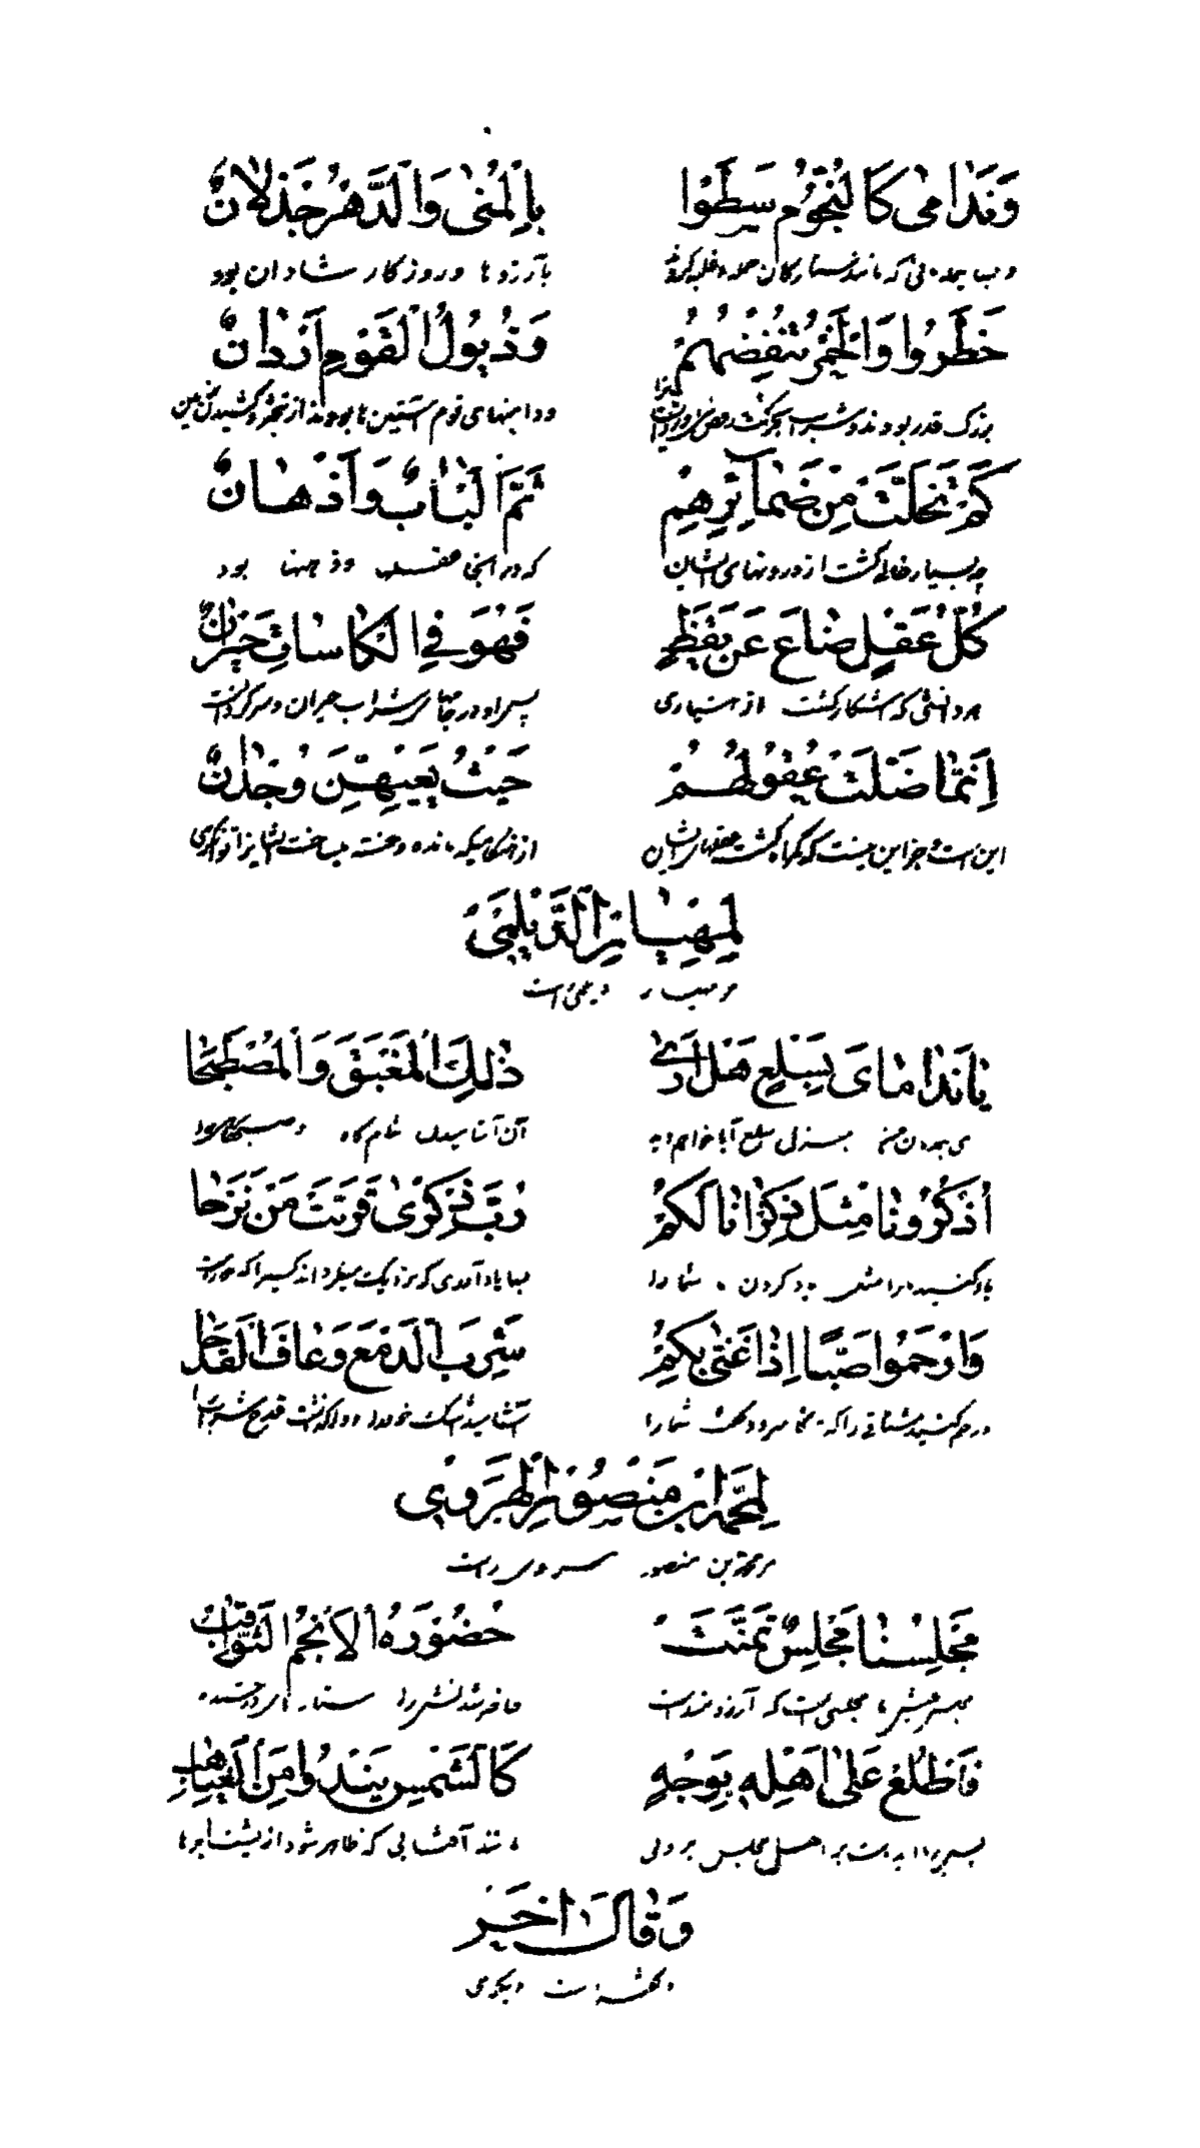 وَنَدَامٰى كَالنُّجُوْمِ سَطَوْا بِالْمُنٰى وَالدَّهْرُ جَذْلَانٌ
که مانند ستارکان بآرزوها وروزکار شادان بود
خَطَرُوا وَالْخَمْرُ تَنْفُضُهُمْ وَذُيُوْلُ الْقَوْمِ اَرْدَانٌ
بزرک قدر بودند و شراب ودامنهای قوم آستین ها بودند از
كَمْ تَخَلَّتْ مِنْ ضَمَآئِرِهِمْ ثَمَّ اَلْبَابٌ وَاَذْهَانٌ
چه بسیار خالی کشت از درونهای ایشان که در آنجا عقلها وذهنها بود
كُلُّ عَقْلٍ ضَاعَ عَنْ يَقِظٍ فَهُوَ فِي الْكَاسَاتِ حَيْرَانٌ
هر دانشی که آشکار کشت از هشیاری پس او در جامهای شراب حیران وسرکردانست
اِنَّمَا ضَلَّتْ عُقُوْلُهُمْ حَيْثُ يُعْيِيْهِنَّ وُجْدَانٌ
این است وجز این نیست که کمراه کشت عقلهای ایشان
لِمِهْيَارِ الدَّيْلَمِيِّ
مر مهیار دیلمی است
يَا نَدَامَايَ بِسَلْعٍ هَلْ اَرٰى ذٰلِكَ الْمَغْبَقَ وَالْمُصْطَبَحَا
ای همدمان من بمنزل سلع آیا خواهم دید آن آشامیدن شام کاه
اُذْكُرُوْنَا مِثْلَ ذِكْرَانَا لَكُمْ رُبَّ ذِكْرٰى قَرَّبَتْ مَنْ نَزَحَا
یاد کنید مرا مثل یاد کردن ما شما را بسا یادآوری که نزدیک میکرداند کسیرا که دورست
وَارْحَمُوا صَبًّا اِذَا غَنّٰى بِكُمْ شَرِبَ الدَّمْعَ وَعَافَ الْقَدَحَا
ورحم کنید مشتاقی را که شما را آشامید اشک خود را قدح شراب را
لِمُحَمَّدِ ابْنِ مَنْصُوْرِ الْهَرَوِيِّ
مر محمد بن منصور هروی راست
مَجْلِسُنَا مَجْلِسٌ تَمَنَّتْ حُضُوْرَهُ الْاَنْجُمُ الثَّوَاقِبُ
مجلس عیش ما مجلسی است که آرزومند است حاضر شدنش را
فَاطْلُعْ عَلٰى اَهْلِهِ بِوَجْهٍ كَالشَّمْسِ يَبْدُوا مِنَ الْغَيَاهِبِ
بر اهل مجلس بروی مانند آفتابی که ظاهر شود از پشت ابرها
وَقَالَ اٰخَرُ
وکفته است دیکری